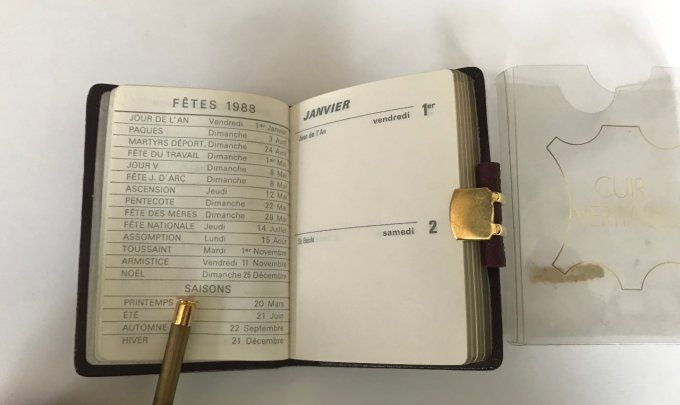 FÊTES 1988
JOUR DE L'AN Vendredi 1er Janvier
PAQUES Dimanche 3 Avril
MARTYRS DÉPORT. Dimanche 24 Avril
FÊTE DU TRAVAIL Dimanche 1er Mai
JOUR V Dimanche 8 Mai
FÊTE J. D'ARC Dimanche 8 Mai
ASCENSION Jeudi 12 Mai
PENTECOTE Dimanche 22 Mai
FÊTE DES MÈRES Dimanche 29 Mai
FÊTE NATIONALE Jeudi 14 Juillet
ASSOMPTION Lundi 15 Août
TOUSSAINT Mardi 1er Novembre
ARMISTICE Vendredi 11 Novembre
NOËL Dimanche 25 Décembre
SAISONS
PRINTEMPS 20 Mars
ÉTÉ 21 Juin
AUTOMNE 22 Septembre
HIVER 21 Décembre
JANVIER
vendredi 1er
Jour de l'An
samedi 2
St Basile
CUIR
VERITABLE